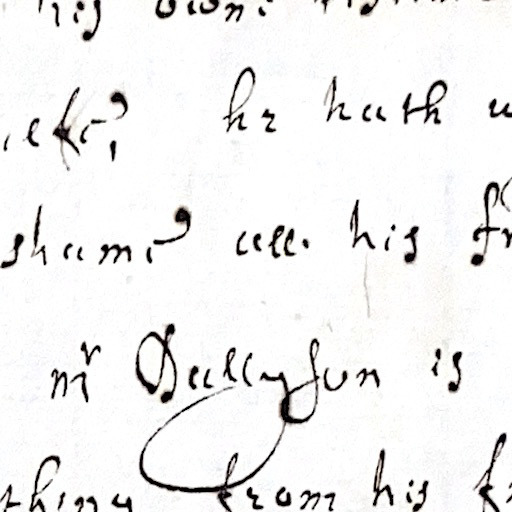 his own
he hath
shame all his fr
mr Dallyson is
thing from his fr